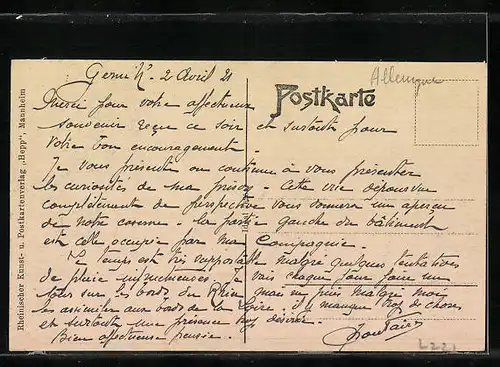 Allemagne
Postkarte
2 Avril 21
Merci pour votre affectueux
souvenir reçu ce soir et surtout pour
votre bon encouragement.
Je vous présente ou continue à vous présenter
les curiosités de ma prison. Cette vue dépourvue
complètement de perspective vous donnera un aperçu
de notre caserne. la partie gauche du bâtiment
est celle occupée par ma Compagnie.
Le temps est très supportable malgré quelques tentatives
de pluie infructueuses. Je vais chaque jour faire un
tour sur les bords du Rhin mais ne puis malgré moi
les assimiler aux bords de la Loire.. il y manque trop de choses
et surtout une présence trop désirée.
Bien affectueuse pensée.
Rheinischer Kunst- u. Postkartenverlag „Hepp“, Mannheim